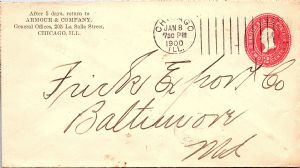 After 5 days, return to
ARMOUR & COMPANY,
General Offices, 205 La Salle Street,
CHICAGO, ILL.
CHICAGO
JAN 8
7 30 PM
1900
ILL.
Frick Export Co
Baltimore
Md